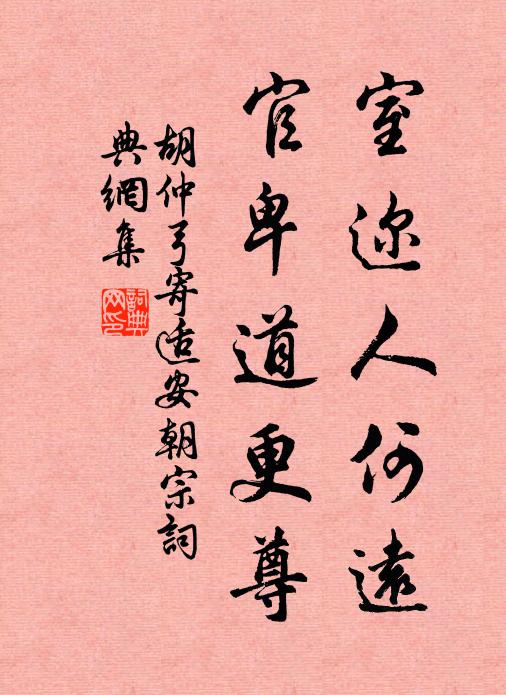 室迩人何遠
官卑道更尊
胡仲弓寄适安朝宗詞
典網集
詞典
网印